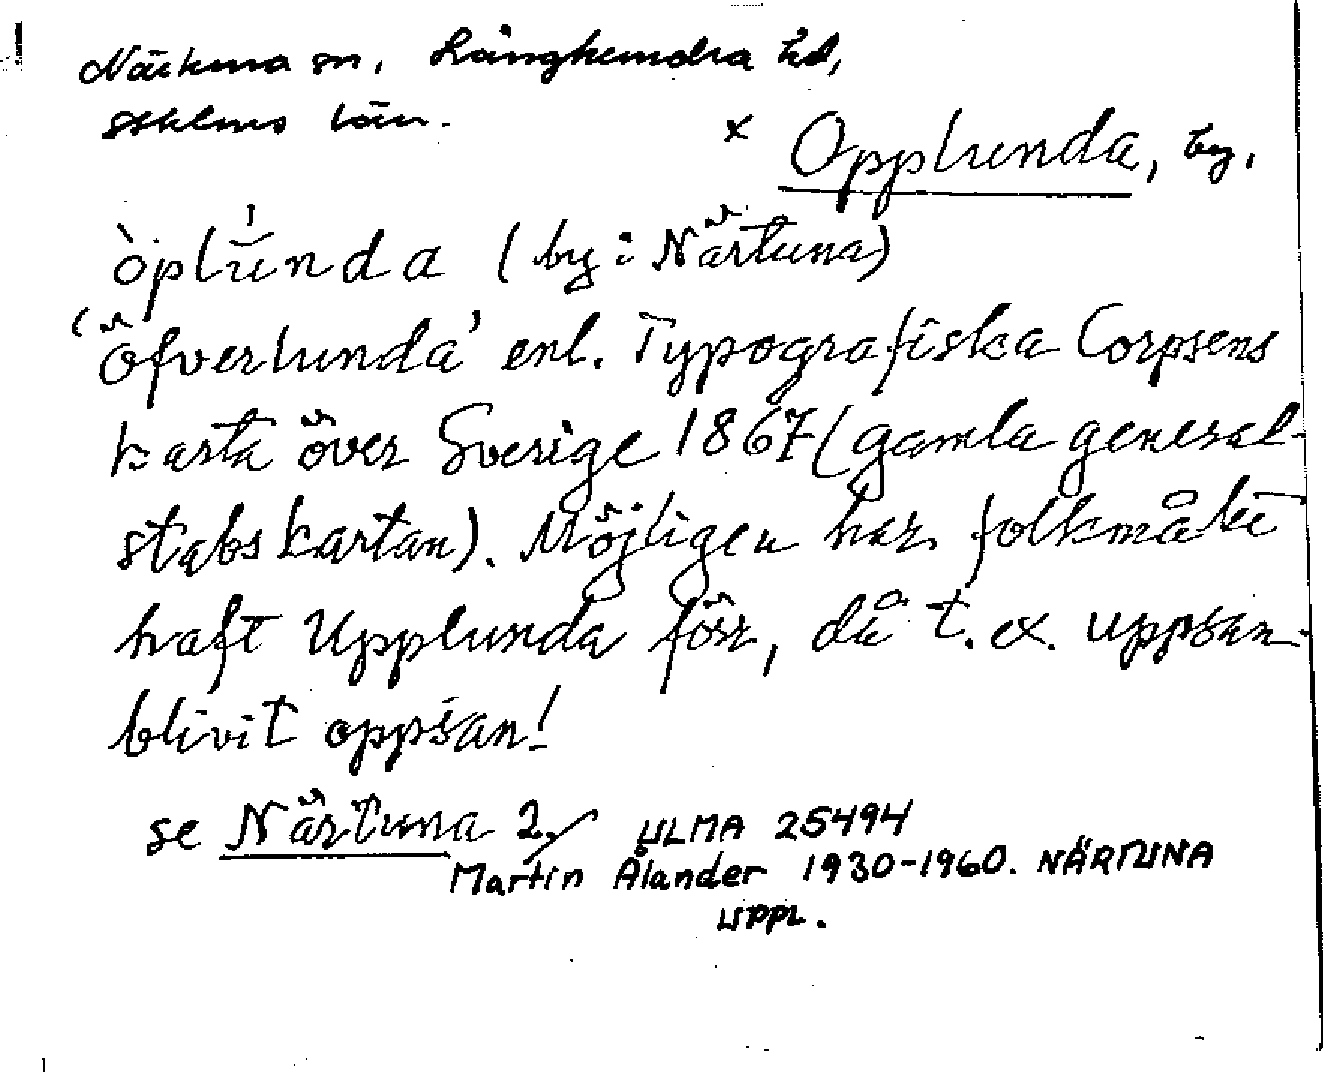 Närtuna sn, Långhundra hd,
Sthlms län.
x Opplunda, by.
òplúnda (by i Närtuna)
'Öfverlunda' enl. Typografiska Corpsens
karta över Sverige 1867 (gamla general-
stabskartan). Möjligen har folkmålet
haft Upplunda förr, då t.ex. uppsan-
blivit oppsan!
se Närtuna 2/
ULMA 25494
Martin Ålander 1930-1960. NÄRTUNA
UPPL.